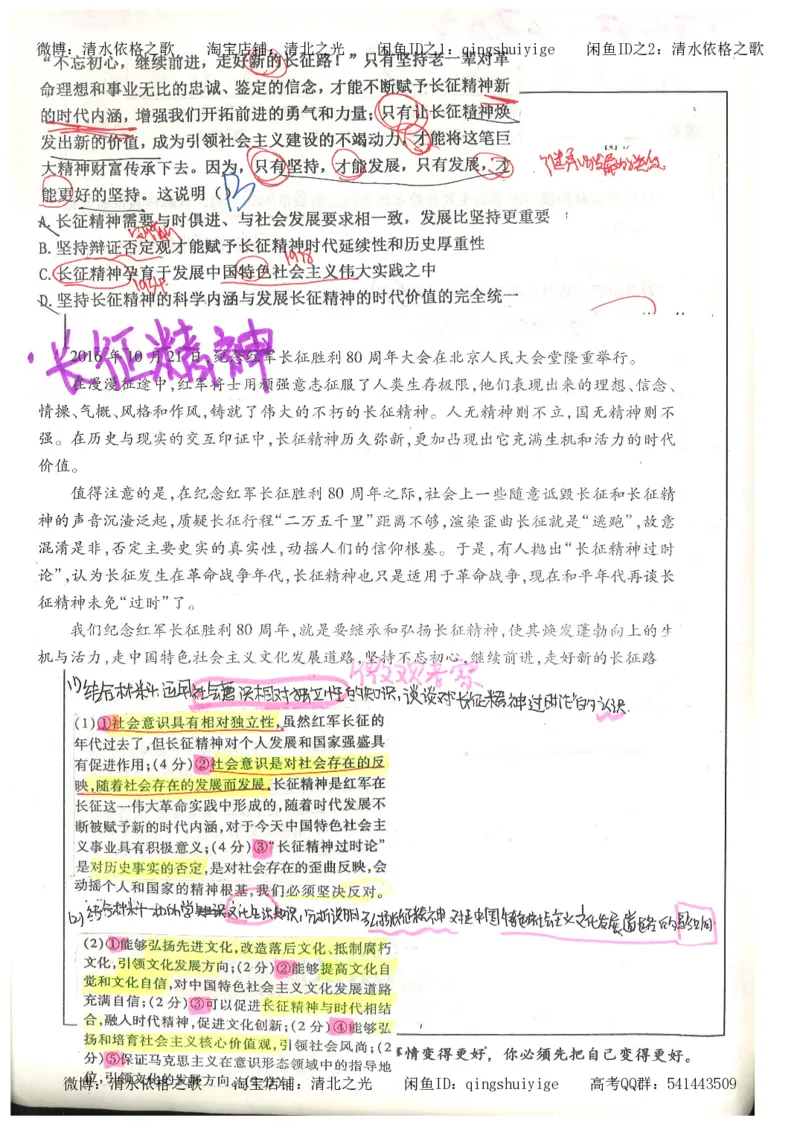 微博：清水依格之歌 淘宝店铺：清北之光 闲鱼ID之1：qingshuiyige 闲鱼ID之2：清水依格之歌
“不忘初心，继续前进，走好新的长征路！”只有坚持老一辈对革
命理想和事业无比的忠诚、鉴定的信念，才能不断赋予长征精神新
的时代内涵，增强我们开拓前进的勇气和力量；只有让长征精神焕
发出新的价值，成为引领社会主义建设的不竭动力，才能将这笔巨
大精神财富传承下去。因为，只有坚持，才能发展，只有发展，才
能更好的坚持。这说明（）B
A.长征精神需要与时俱进、与社会发展要求相一致，发展比坚持更重要
B.坚持辩证否定观才能赋予长征精神时代延续性和历史厚重性
1978
C.长征精神孕育于发展中国特色社会主义伟大实践之中
1934
D.坚持长征精神的科学内涵与发展长征精神的时代价值的完全统一
·长征精神
2016年10月21日，纪念红军长征胜利80周年大会在北京人民大会堂隆重举行。
在漫漫征途中，红军将士用顽强意志征服了人类生存极限，他们表现出来的理想、信念、
情操、气概、风格和作风，铸就了伟大的不朽的长征精神。人无精神则不立，国无精神则不
强。在历史与现实的交互印证中，长征精神历久弥新，更加凸现出它充满生机和活力的时代
价值。
值得注意的是，在纪念红军长征胜利80周年之际，社会上一些随意诋毁长征和长征精
神的声音沉渣泛起，质疑长征行程“二万五千里”距离不够，渲染歪曲长征就是“逃跑”，故意
混淆是非，否定主要史实的真实性，动摇人们的信仰根基。于是，有人抛出“长征精神过时
论”，认为长征发生在革命战争年代，长征精神也只是适用于革命战争，现在和平年代再谈长
征精神未免“过时”了。
我们纪念红军长征胜利80周年，就是要继承和弘扬长征精神，使其焕发蓬勃向上的生
机与活力，走中国特色社会主义文化发展道路，坚持不忘初心，继续前进，走好新的长征路
微观考察
(1)结合材料一运用社会意识相对独立性的知识，谈谈对“长征精神过时论”的认识.
(1)①社会意识具有相对独立性，虽然红军长征的
年代过去了，但长征精神对个人发展和国家强盛具
有促进作用；(4分)②社会意识是对社会存在的反
映，随着社会存在的发展而发展，长征精神是红军在
长征这一伟大革命实践中形成的，随着时代发展不
断被赋予新的时代内涵，对于今天中国特色社会主
义事业具有积极意义；(4分)③“长征精神过时论”
是对历史事实的否定，是对社会存在的歪曲反映，会
动摇个人和国家的精神根基，我们必须坚决反对。
(2)结合材料一和所学文化生活知识，分析说明弘扬长征精神对走中国特色社会主义文化发展道路的
(2)①能够弘扬先进文化，改造落后文化、抵制腐朽
文化，引领文化发展方向；(2分)②能够提高文化自
觉和文化自信，对中国特色社会主义文化发展道路
充满自信；(2分)③可以促进长征精神与时代相结
合，融入时代精神，促进文化创新；(2分)④能够弘
扬和培育社会主义核心价值观，引领社会风尚；(2
分)⑤保证马克思主义在意识形态领域中的指导地
位，引领文化的发展方向。(2分)
事情变得更好，你必须先把自己变得更好。
微博：清水依格之歌 淘宝店铺：清北之光 闲鱼ID：qingshuiyige 高考QQ群：541443509